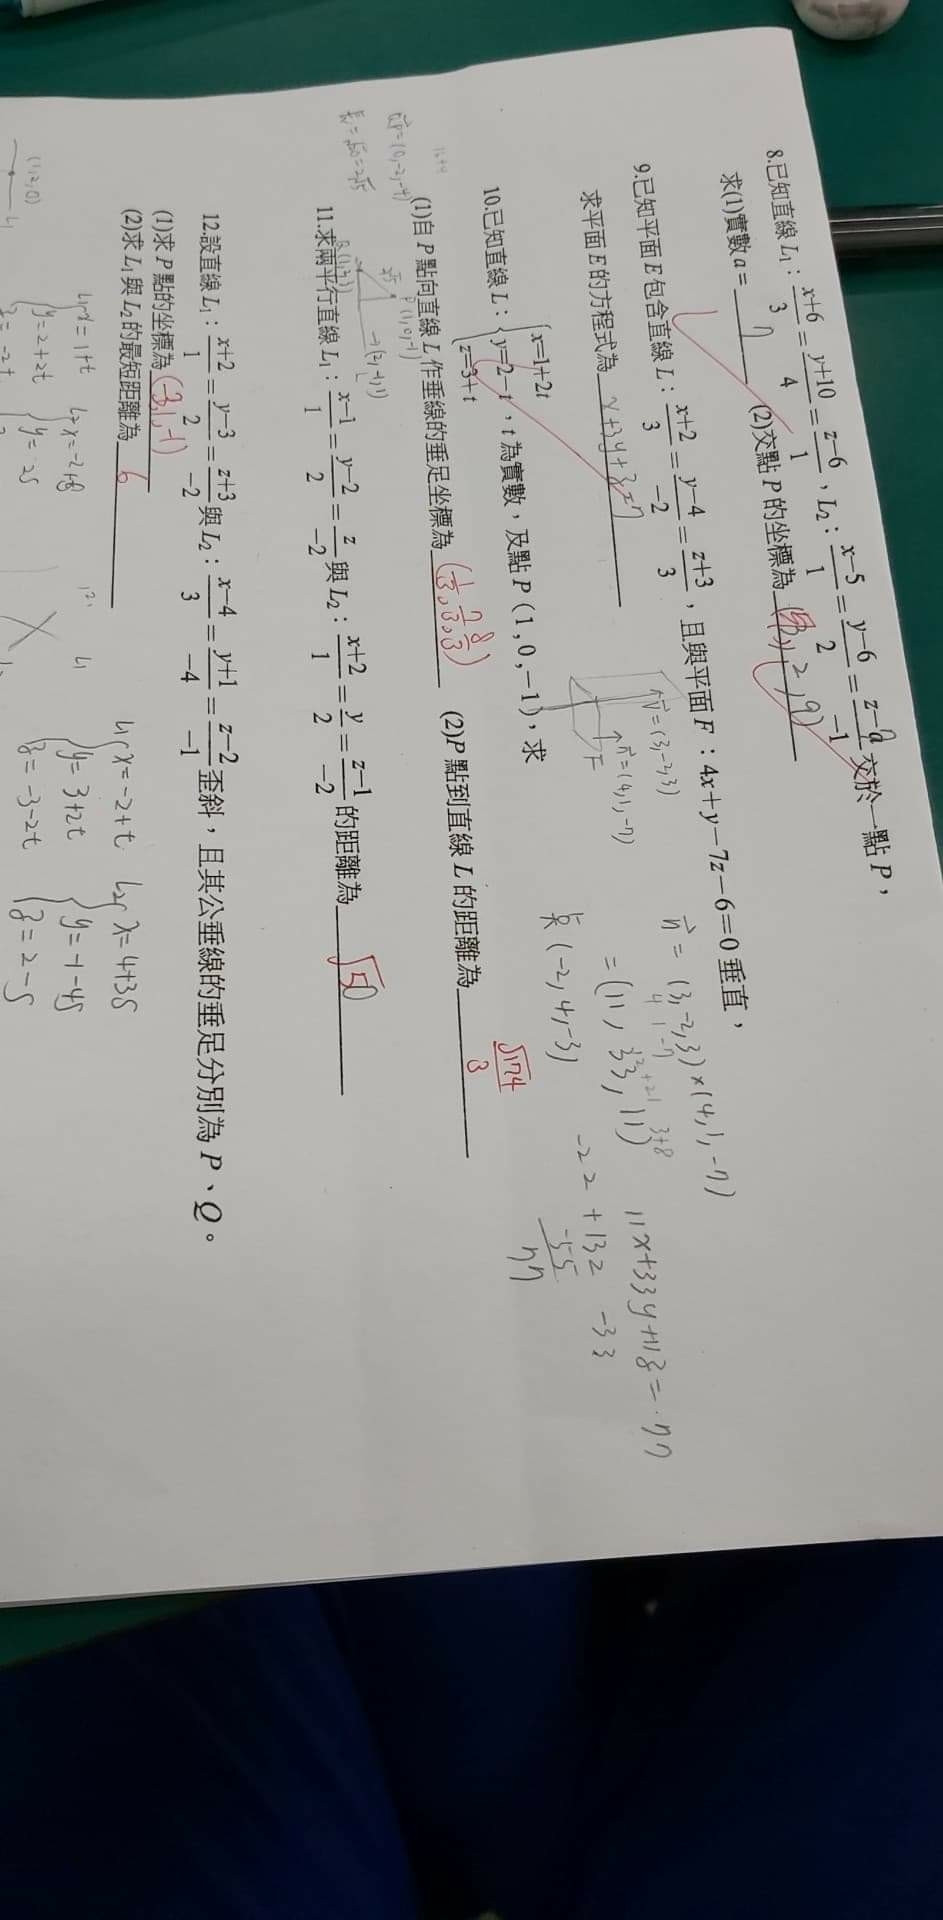 8.已知直線 L₁：(x+6)/3 = (y+10)/4 = (z-6)/1，L₂：(x-5)/1 = (y-6)/2 = (z-a)/-1 交於一點 P，
求(1)實數 a = 7 (2)交點 P 的坐標為 2, 9)
9.已知平面 E 包含直線 L：(x+2)/3 = (y-4)/-2 = (z+3)/3，且與平面 F：4x+y-7z-6=0 垂直，
求平面 E 的方程式為 x+3y+z=7
v=(3,-2,3)
n=(4,1,-7)
F
n = (3,-2,3)×(4,1,-7)
4 1 -7
= (11, 33, 11)
長 (-2,4,-3)
11x+33y+11z=77
-22+132-33
-55
77
10.已知直線 L：{x=1+2t
y=2-t，t 為實數，及點 P(1,0,-1)，求
z=3+t
(1)自 P 點向直線 L 作垂線的垂足坐標為 (1/3, 7/3, 8/3) (2)P 點到直線 L 的距離為 √174/3
QP=(0,-2,-4)
長=√20=2√5
P(1,0,-1)
(2,-1,1)
L
11.求兩平行直線 L₁：(x-1)/1 = (y-2)/2 = z/-2 與 L₂：(x+2)/1 = y/2 = (z-1)/-2 的距離為 √50
12.設直線 L₁：(x+2)/1 = (y-3)/2 = (z+3)/-2 與 L₂：(x-4)/3 = (y+1)/-4 = (z-2)/-1 歪斜，且其公垂線的垂足分別為 P、Q。
(1)求 P 點的坐標為 (-3,1,-1)
(2)求 L₁ 與 L₂ 的最短距離為 6
L₁{x=-2+t L₂{x=4+3s
y=3+2t y=-1-4s
z=-3-2t z=2-s
L₁x=1+t L₂x=-2+s
y=2+2t y=2s
z=-2t
(1,2,0)
L₁